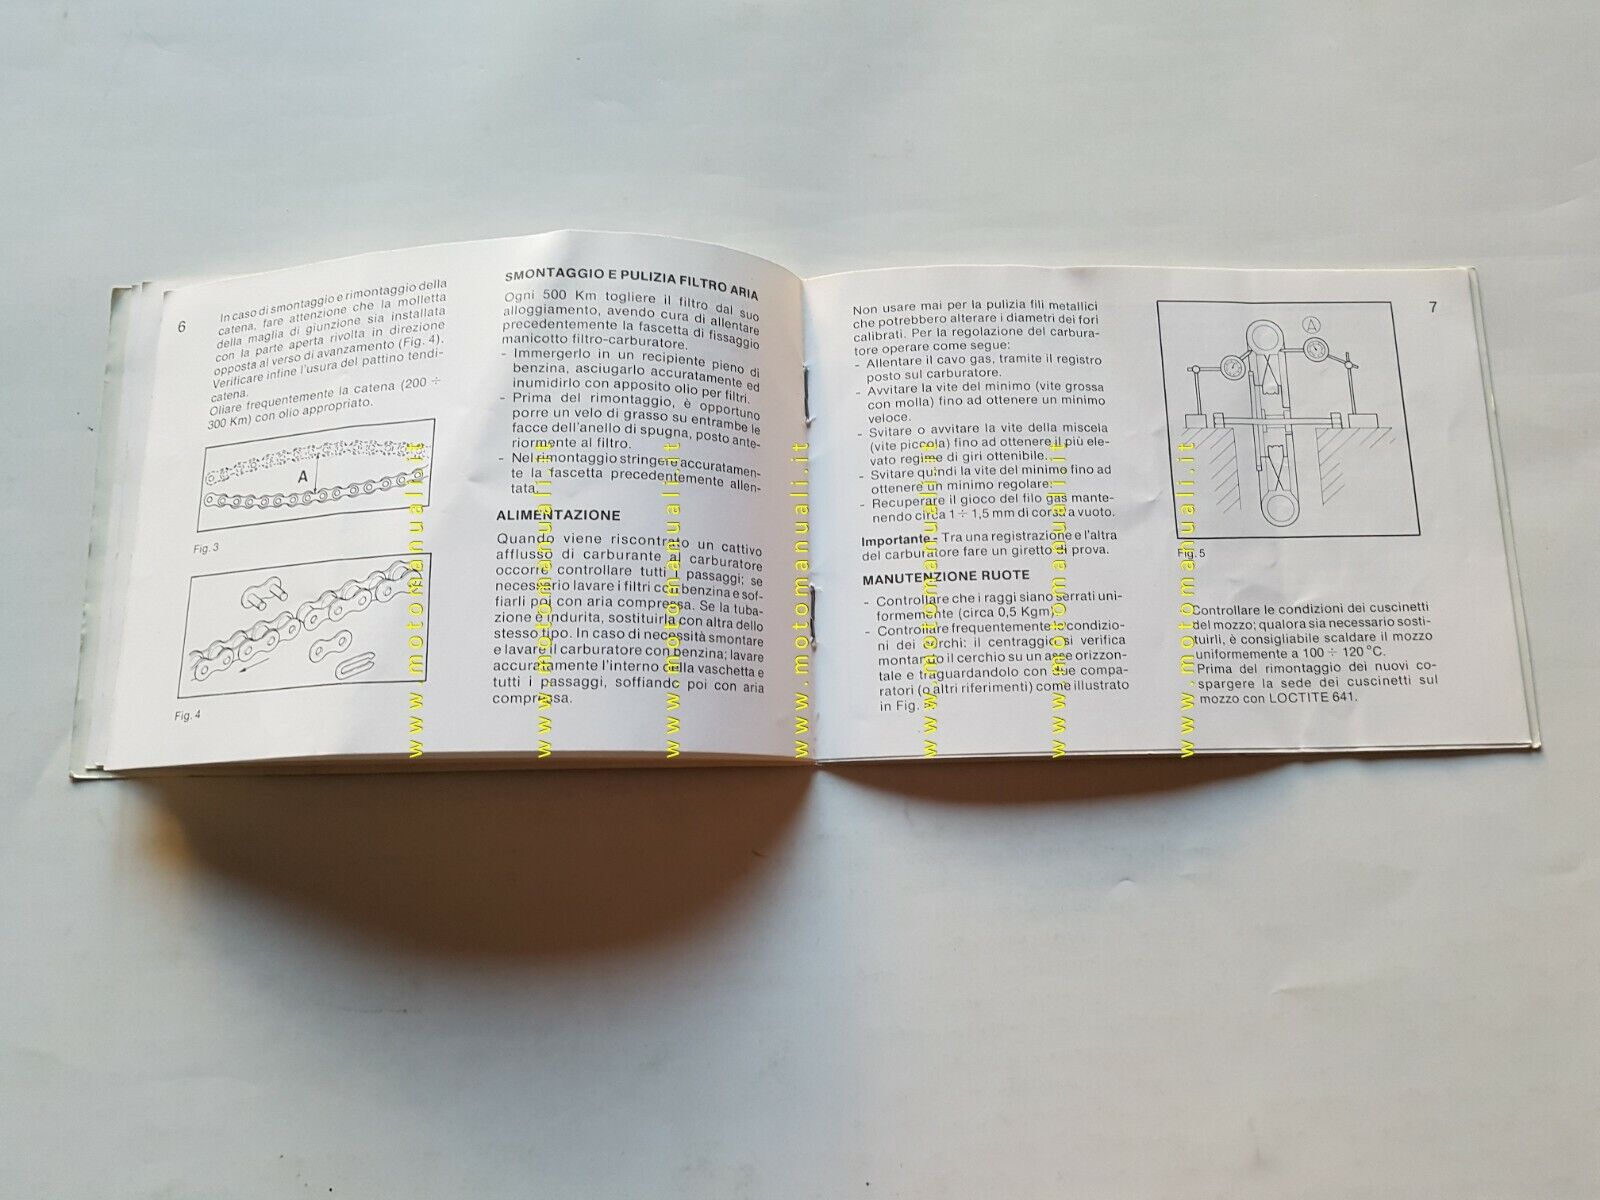 6
In caso di smontaggio e rimontaggio della
catena, fare attenzione che la molletta
della maglia di giunzione sia installata
con la parte aperta rivolta in direzione
opposta al verso di avanzamento (Fig. 4).
Verificare infine l'usura del pattino tendi-
catena.
Oliare frequentemente la catena (200 ÷
300 Km) con olio appropriato.
A
Fig. 3
Fig. 4
SMONTAGGIO E PULIZIA FILTRO ARIA
Ogni 500 Km togliere il filtro dal suo
alloggiamento, avendo cura di allentare
precedentemente la fascetta di fissaggio
manicotto filtro-carburatore.
- Immergerlo in un recipiente pieno di
benzina, asciugarlo accuratamente ed
inumidirlo con apposito olio per filtri.
- Prima del rimontaggio, è opportuno
porre un velo di grasso su entrambe le
facce dell'anello di spugna, posto ante-
riormente al filtro.
- Nel rimontaggio stringere accuratamen-
te la fascetta precedentemente allen-
tata.
ALIMENTAZIONE
Quando viene riscontrato un cattivo
afflusso di carburante al carburatore
occorre controllare tutti i passaggi; se
necessario lavare i filtri con benzina e sof-
fiarli poi con aria compressa. Se la tuba-
zione è indurita, sostituirla con altra dello
stesso tipo. In caso di necessità smontare
e lavare il carburatore con benzina; lavare
accuratamente l'interno della vaschetta e
tutti i passaggi, soffiando poi con aria
compressa.
Non usare mai per la pulizia fili metallici
che potrebbero alterare i diametri dei fori
calibrati. Per la regolazione del carbura-
tore operare come segue:
- Allentare il cavo gas, tramite il registro
posto sul carburatore.
- Avvitare la vite del minimo (vite grossa
con molla) fino ad ottenere un minimo
veloce.
- Svitare o avvitare la vite della miscela
(vite piccola) fino ad ottenere il più ele-
vato regime di giri ottenibile.
- Svitare quindi la vite del minimo fino ad
ottenere un minimo regolare.
- Recuperare il gioco del filo gas mante-
nendo circa 1 ÷ 1,5 mm di corsa a vuoto.
Importante - Tra una registrazione e l'altra
del carburatore fare un giretto di prova.
MANUTENZIONE RUOTE
- Controllare che i raggi siano serrati uni-
formemente (circa 0,5 Kgm).
- Controllare frequentemente le condizio-
ni dei cerchi: il centraggio si verifica
montando il cerchio su un asse orizzon-
tale e traguardandolo con due compa-
ratori (o altri riferimenti) come illustrato
in Fig.
7
A
Fig. 5
Controllare le condizioni dei cuscinetti
del mozzo; qualora sia necessario sosti-
tuirli, è consigliabile scaldare il mozzo
uniformemente a 100 ÷ 120 °C.
Prima del rimontaggio dei nuovi co-
spargere la sede dei cuscinetti sul
mozzo con LOCTITE 641.
www.motomanuali.it
www.motomanuali.it
www.motomanuali.it
www.motomanuali.it
www.motomanuali.it
www.motomanuali.it
www.motomanuali.it